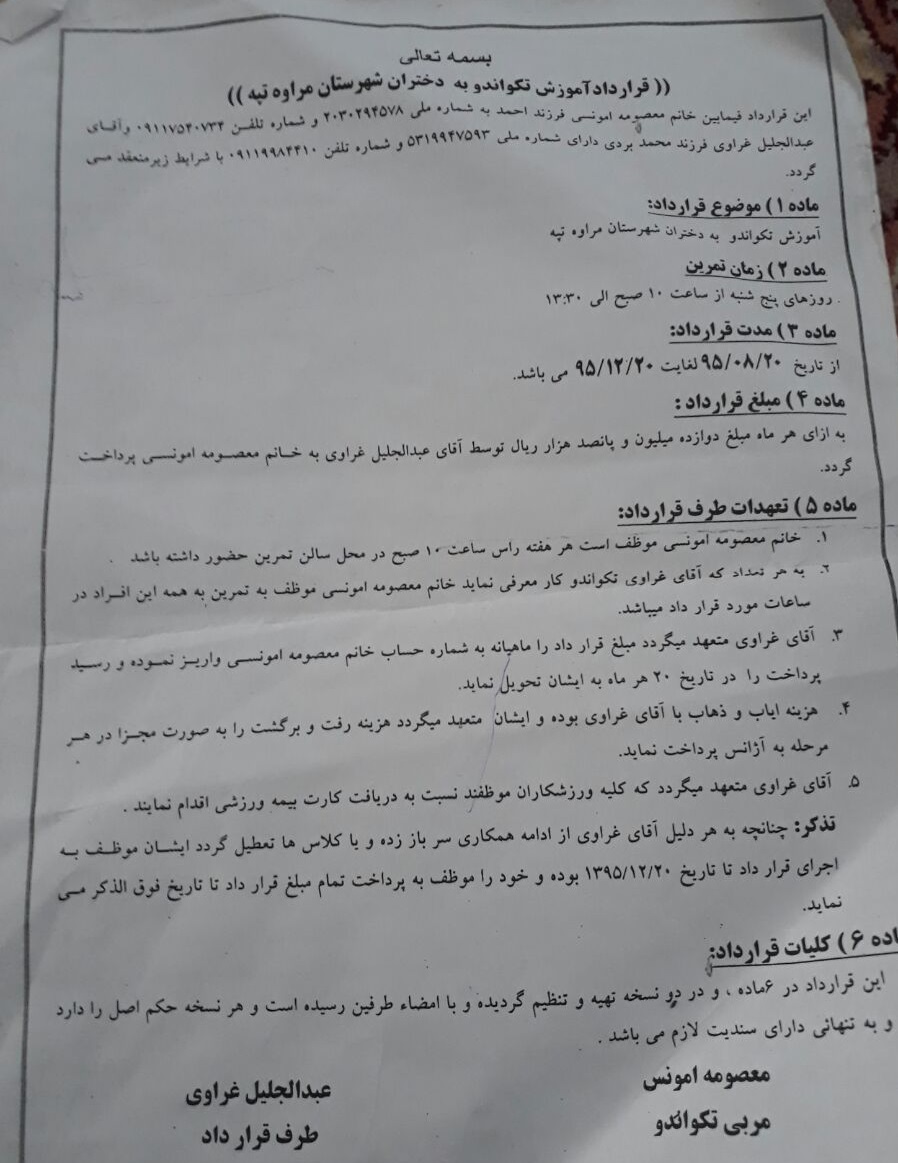 بسمه تعالی
(( قرارداد آموزش تکواندو به دختران شهرستان مراوه تپه ))
این قرارداد فیمابین خانم معصومه امونسی فرزند احمد به شماره ملی ۲۰۳۰۲۹۴۵۷۸ و شماره تلفن ۰۹۱۱۷۵۴۰۷۳۴ وآقای
عبدالجلیل غراوی فرزند محمد بردی دارای شماره ملی ۵۳۱۹۹۴۷۵۹۳ و شماره تلفن ۰۹۱۱۹۹۸۴۴۱۰ با شرایط زیرمنعقد می
گردد.
ماده ۱ ) موضوع قرارداد:
آموزش تکواندو به دختران شهرستان مراوه تپه
ماده ۲ ) زمان تمرین
روزهای پنج شنبه از ساعت ۱۰ صبح الی ۱۳:۳۰
ماده ۳ ) مدت قرارداد:
از تاریخ ۹۵/۰۸/۲۰ لغایت ۹۵/۱۲/۲۰ می باشد.
ماده ۴ ) مبلغ قرارداد :
به ازای هر ماه مبلغ دوازده میلیون و پانصد هزار ریال توسط آقای عبدالجلیل غراوی به خانم معصومه امونسی پرداخت
گردد.
ماده ۵ ) تعهدات طرف قرارداد:
۱. خانم معصومه امونسی موظف است هر هفته راس ساعت ۱۰ صبح در محل سالن تمرین حضور داشته باشد .
۲. به هر تعداد که آقای غراوی تکواندو کار معرفی نماید خانم معصومه امونسی موظف به تمرین به همه این افراد در
ساعات مورد قرار داد میباشد.
۳. آقای غراوی متعهد میگردد مبلغ قرار داد را ماهیانه به شماره حساب خانم معصومه امونسی واریز نموده و رسید
پرداخت را در تاریخ ۲۰ هر ماه به ایشان تحویل نماید.
۴. هزینه ایاب و ذهاب با آقای غراوی بوده و ایشان متعهد میگردد هزینه رفت و برگشت را به صورت مجزا در هر
مرحله به آژانس پرداخت نماید.
۵. آقای غراوی متعهد میگردد که کلیه ورزشکاران موظفند نسبت به دریافت کارت بیمه ورزشی اقدام نمایند .
تذکر: چنانچه به هر دلیل آقای غراوی از ادامه همکاری سر باز زده و یا کلاس ها تعطیل گردد ایشان موظف به
اجرای قرار داد تا تاریخ ۱۳۹۵/۱۲/۲۰ بوده و خود را موظف به پرداخت تمام مبلغ قرار داد تا تاریخ فوق الذکر می
نماید.
ماده ۶ ) کلیات قرارداد:
این قرارداد در ۶ماده ، و در دو نسخه تهیه و تنظیم گردیده و با امضاء طرفین رسیده است و هر نسخه حکم اصل را دارد
و به تنهائی دارای سندیت لازم می باشد .
معصومه امونس
عبدالجلیل غراوی
مربی تکواندو
طرف قرار داد